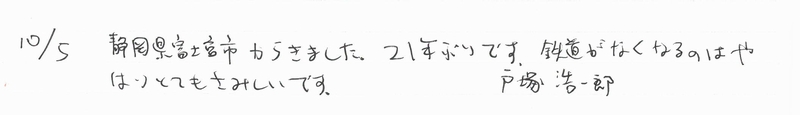 10/5 静岡県富士宮市からきました。21年ぶりです。鉄道がなくなるのはや
はりとてもさみしいです。 戸塚 浩一郎